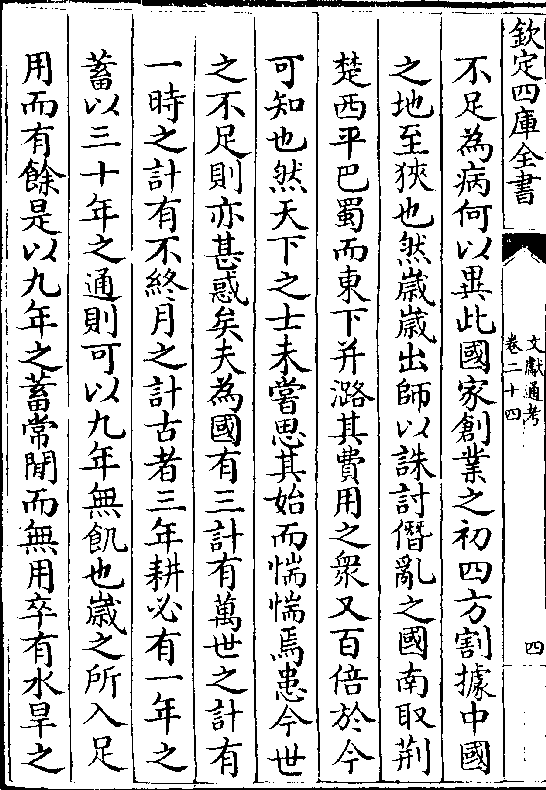 欽定四庫全書
文獻通考
卷二十四
四
不足為病何以異此國家創業之初四方割據中國
之地至狹也然歲歲出師以誅討僭亂之國南取荆
楚西平巴蜀而東下并潞其費用之衆又百倍於今
可知也然天下之士未嘗思其始而惴惴焉患今世
之不足則亦甚惑矣夫為國有三計有萬世之計有
一時之計有不終月之計古者三年耕必有一年之
蓄以三十年之通則可以九年無飢也歲之所入足
用而有餘是以九年之蓄常閒而無用卒有水旱之